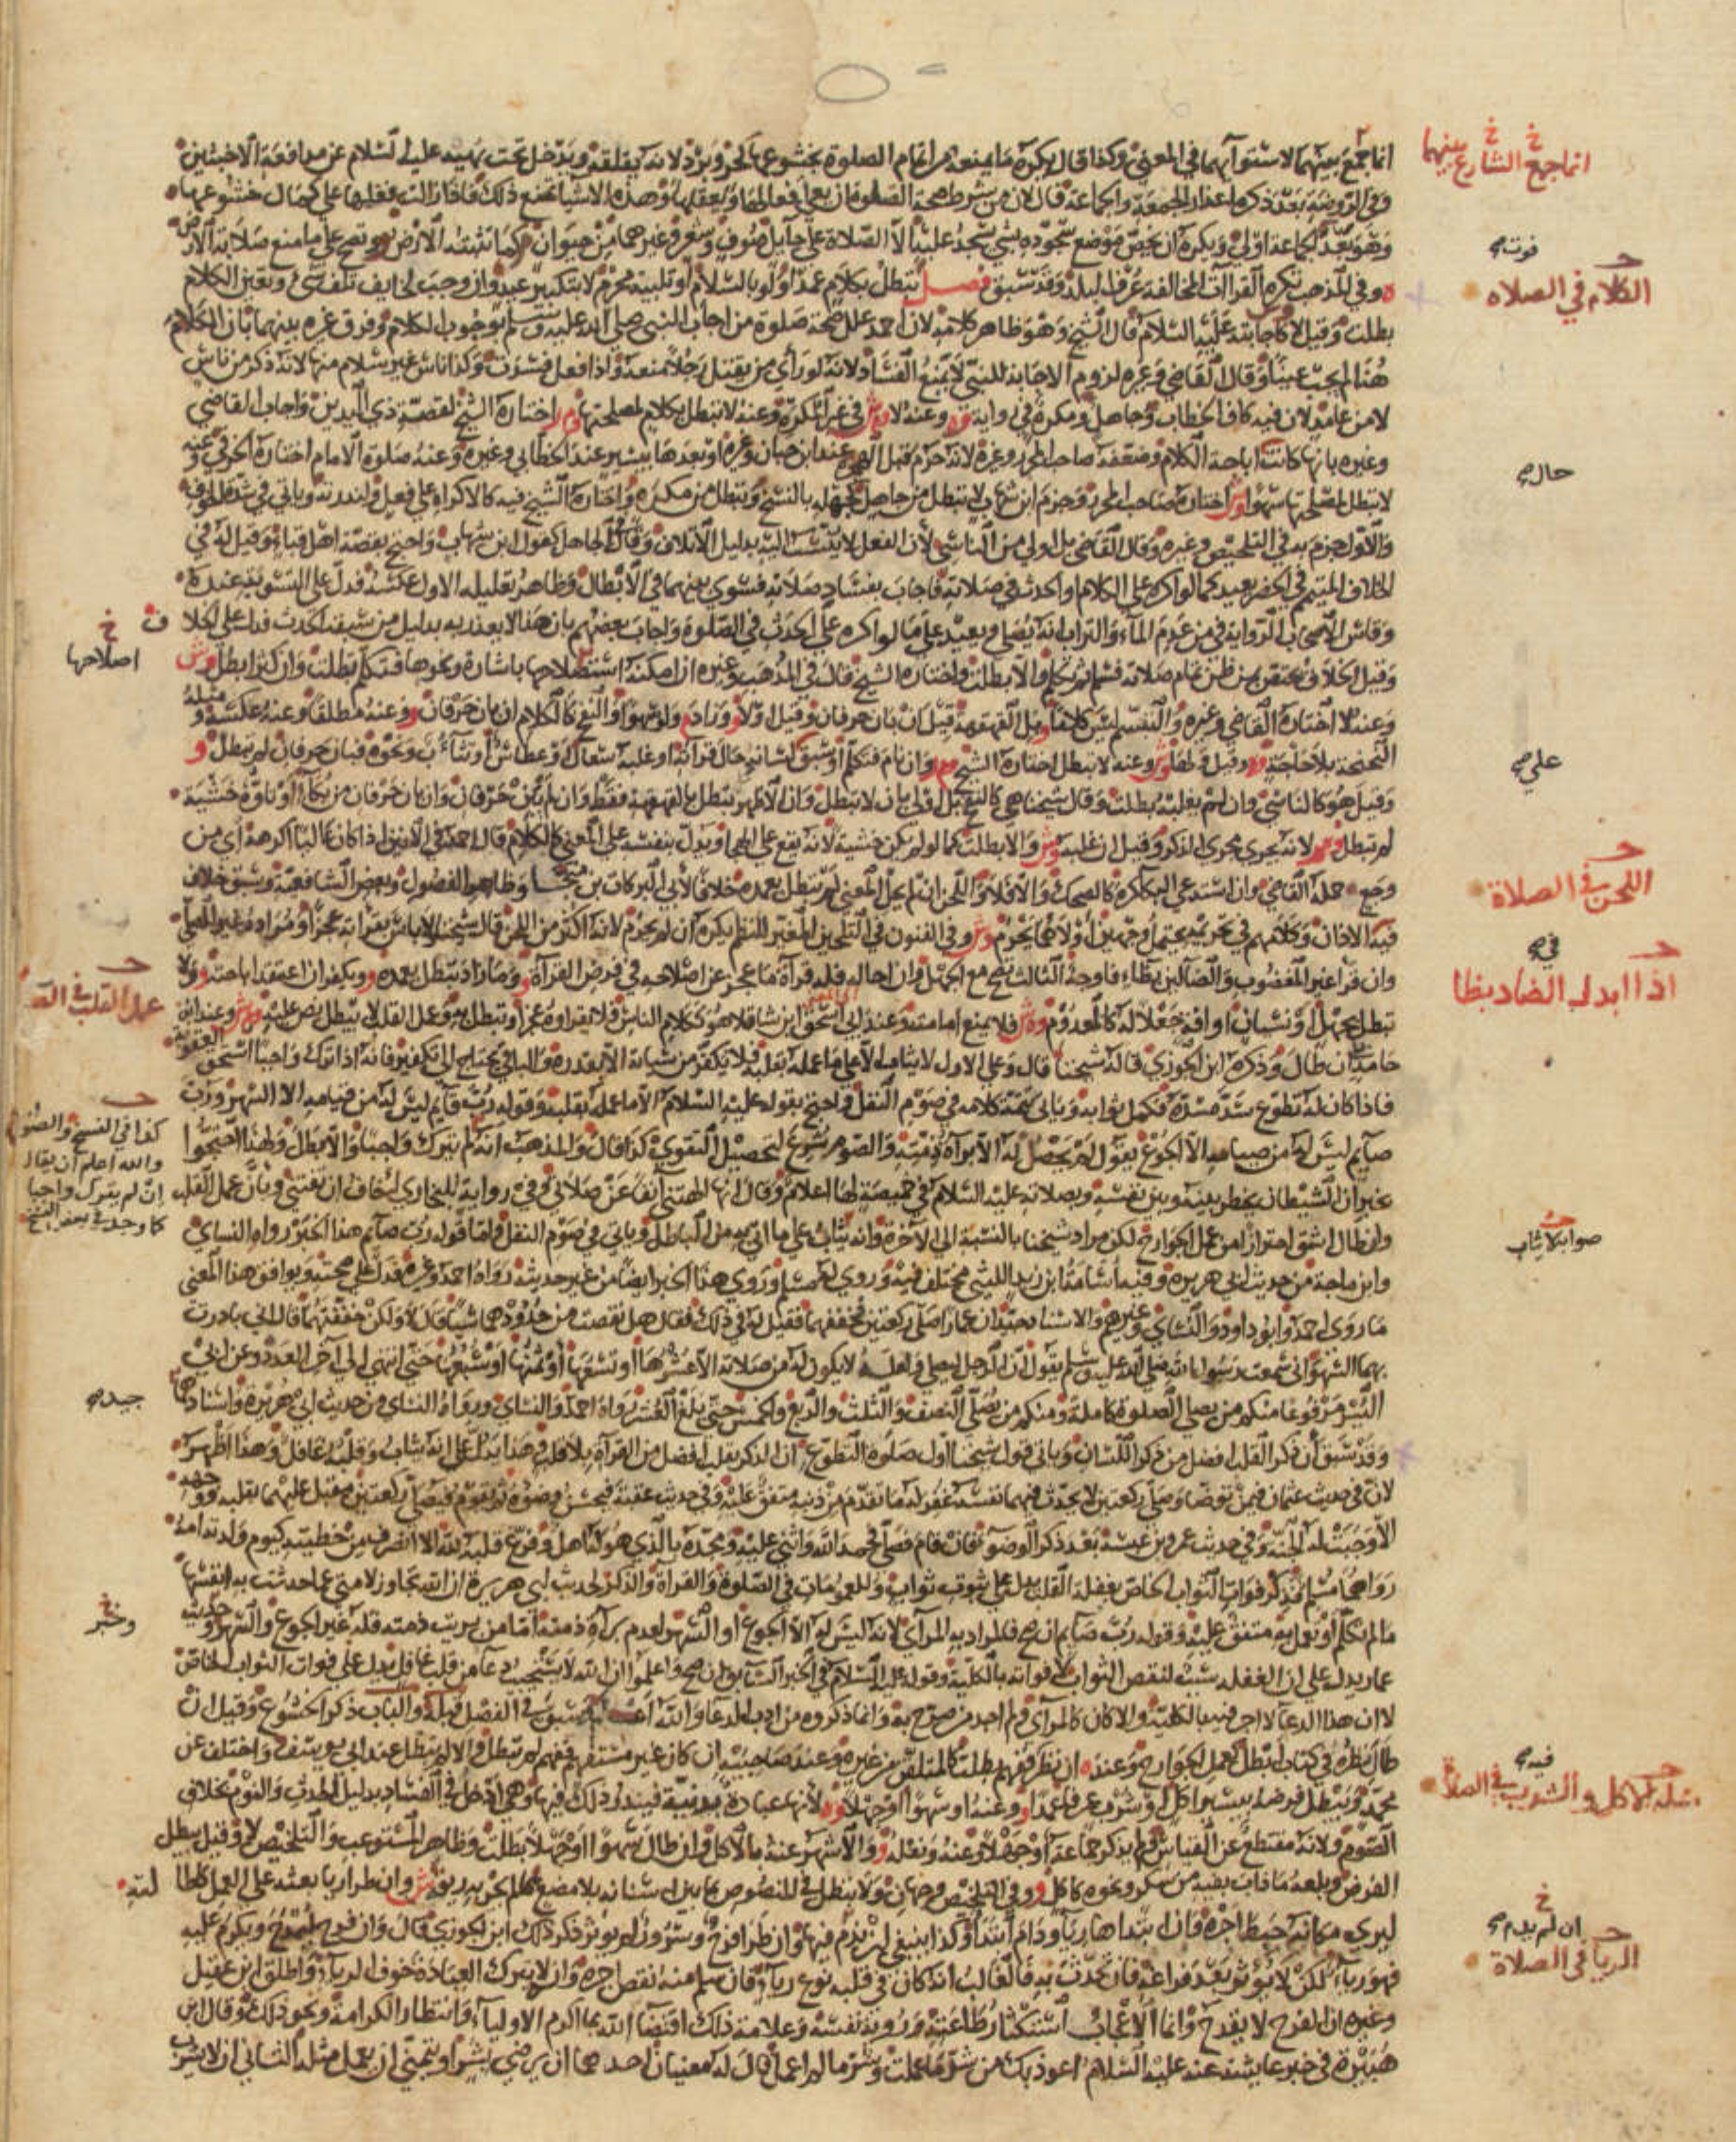 انما جمع بينهما لاستوآيهما في المعنى وكذا قال يكره ما يمنعه من اتمام الصلوة بخشوعها كحر وبرد لانه يقلقه ويدخل تحت نهيه عليه السلام عن مدافعة الاخبثين
انما جمع الشارع بينهما
وفي الروضة بعد ذكره اعذار الجمعة والجماعة قال لان من شرط صحة الصلوة ان يعي افعالها ويعقلها وهذه الاشيا تمنع ذلك فاذا زالت فعلها على كمال خشوعها
وهو بعد الجماعة اولى ويكره ان يخص موضع سجوده بشي يسجد عليه الا الصلاة على حآيل صوف وشعر وغيرهما من حيوان كما تنبته الارض ويصح على ما منع صلابة الارض
فوت
وفي المذهب تكره القراة المخالفة عرف البلد وقد سبق فصل تبطل بكلام عمدا ولو بالسلام او تلبية محرم لا بتكبير عيد وان وجب لخايف تلف شي وتعين الكلام
الكلام في الصلاه
بطلت وقيل لا كاجابته عليه السلام قال الشيخ وهو ظاهر كلامه لان احمد علل صحة صلوة من اجاب النبي صلى الله عليه وسلم بوجوب الكلام وفرق غيره بينهما بان الكلام
هنا لم يجب عينا وقال القاضي وغيره لزوم الاجابة للنبي لا يمنع الفساد لانه لو راى من يقتل رجلا منعه واذا فعل فسدت وكذا ناس غير سلام منها لانه ذكر من ناس
لا من عامد لان فيه كاف الخطاب وجاهل ومكره في رواية وعنه لا في غير المكره وعنه لا تبطل بكلام لمصلحتها اختاره الشيخ لقصة ذي اليدين واجاب القاضي
وغيره بانها كانت اباحة الكلام وضعفه صاحب المحرر وغيره لانه حرم قبل الهجرة عند ابن حبان وغيره او بعدها بيسير عند الخطابي وغيره وعنه صلوة الامام اختاره الخرقي وعنه
حاله
لا تبطل لمصلحتها سهوا اختاره صاحب المحرر وجزم ابن شهاب لا تبطل من جاهل لجهله بالنسخ وتبطل من مكره واختاره الشيخ فيه كالاكراه على فعل ولندرته وياتي في شدة الخوف
والاول جزم به في التلخيص وغيره وقال القاضي بل اولى من الناسي لان الفعل لا ينسب اليه بدليل الاتلاف وقال الجاهل كقول ابن شهاب واحتج بقصة اهل قباء وقيل له في
الخلاف المتيمم في الحضر يعيد كما لو اكره على الكلام او الحدث في صلاته فاجاب بفساد صلاته فسوى بينهما في الابطال وظاهر تعليله الاول عكسه فدل على التسوية عنده
وقاس الاصحاب الرواية في من عدم المآء والتراب انه يصلي ويعيد على ما لو اكره على الحدث في الصلوة واجاب بعضهم بان هذا لا يعذر به بدليل من سبقه الحدث فدل على الخلا
ف خ
وقيل الخلاف يختص بمن ظن تمام صلاته فسلم ثم تكلم والا بطلت واختاره الشيخ قال في المذهب وغيره ان امكنه استصلاحها باشارة ونحوها فتكلم بطلت وان كثر ابطل
اصلاحها
وعنه لا اختاره القاضي وغيره والتبسم ليس كلاما بل القهقهة قيل ان بان حرفان وقيل اولا وزاد ولو سهوا والنفخ كالكلام ان بان حرفان وعنه مطلقا وعنه عكسه ومثله
النحنحة بلا حاجة وقيل ولها وعنه لا تبطل اختاره الشيخ وان نام فتكلم او سبق لسانه حال قرآته او غلبه سعال او عطاس او تثآب ونحوه فبان حرفان لم تبطل
علي
وقيل هو كالناسي وان لم يغلبه بطلت وقال شيخنا هي كالنفخ بل اولى بان لا تبطل وان الاظهر تبطل بالقهقهة فقط وان لم يبن حرفان وان بان حرفان من بكآء او تاوه خشية
لم تبطل لانه يجري مجرى الذكر وقيل ان غلبه والا بطلت كما لو لم يكن خشية لانه يقع على الهجا ويدل بنفسه على المعنى كالكلام قال احمد في الانين اذا كان غالبا اكرهه اي من
وجع حمله القاضي وان استدعى البكا كره كالضحك والا فلا واللحن ان لم يحل المعنى لم تبطل بعمده خلافا لابي البركات بن منجا وظاهر الفصول وبعض الشافعية وسبق خلاف
اللحن في الصلاة
فيه الاذان وكلامهم في تحريمه يحتمل وجهين اولاهما يحرم وفي الفنون في التلحين المغير للنظم يكره ان لم يحرم لانه اكثر من اللحن قال شيخنا لا باس بقرآته عجزا ومراده غير المصلي
في
وان قرأ غير المغضوب والضآلين بظاء فاوجه الثالث يصح مع الجهل وان احاله فله قرآة ما عجز عن اصلاحه في فرض القرآة وما زاد تبطل بعمده ويكفر ان اعتقد اباحته ولا
اذا ابدل الضاد بظا
تبطل لجهل او نسيان او افة جعلا له كالمعدوم فلا يمنع امامته وعند ابي اسحق ابن شاقلا هو ككلام الناس فلا يقراه عجزا وتبطل به وعمل القلب لا يبطل نص عليه وعند ابن
عمل القلب في الصلا
حامد ان طال وذكره ابن الجوزي قاله شيخنا قال وعلى الاول لا يثاب الا على ما عمله بقلبه فلا يكفر من سيآته الا بقدره والباقي يحتاج الى تكفير فانه اذا ترك واجبا استحق العقوبة
فاذا كان له تطوع سد مسده فكمل ثوابه وياتي تتمة كلامه في صوم النفل واحتج بقوله عليه السلام الا ما عمله بقلبه وقوله رب قآيم ليس له من قيامه الا السهر ورب
صآيم ليس له من صيامه الا الجوع يقول لم يحصل له الا براة ذمته والصوم شرع لتحصيل التقوى كذا قال والمذهب انه لم يترك واجبا والا بطل ولهذا احتجوا
كذا في النسخ والصواب
والله اعلم ان يقال
ان لم يترك واجبا
كما وجد في بعض النسخ
بخبر ان الشيطان يخطر بينه وبين نفسه وبصلاته عليه السلام في خميصة لها اعلام وقال انها الهتني آنفا عن صلاتي وفي رواية للبخاري اخاف ان تفتني وبان عمل القلب
وان طال اشق احترازا من عمل الجوارح لكن مراد شيخنا بالنسبة الى الآخرة وانه يثاب على ما اتى به من الباطل وياتي في صوم النفل واما قوله رب صآيم هذا الخبر رواه النساي
صوابه لا يثاب
وابن ماجة من حديث ابي هريرة وفيه اسامة ابن زيد الليثي مختلف فيه وروى له مسلم وروي هذا الخبر ايضا من غير حديثه رواه احمد وغيره فدل على صحته ويوافق هذا المعنى
ما روى احمد وابو داود والنساي وغيرهم والاسناد جيد ان عمارا صلى ركعتين فخففهما فقيل له في ذلك فقال هل نقصت من حدودهما شيا قال لا ولكن خففتهما قال اني بادرت
بهما السهو اني سمعت رسول الله صلى الله عليه وسلم يقول ان الرجل ليصلي ولعله لا يكون له من صلاته الا عشرها او تسعها او ثمنها او سبعها حتى انتهى الى آخر العدد وعن ابي
اليسر مرفوعا منكم من يصلي الصلوة كاملة ومنكم من يصلي النصف والثلث والربع والخمس حتى بلغ العشر رواه احمد والنساي ورواه النساي من حديث ابي هريرة واسنادهما
جيد
وقد سبق ان ذكر القلب افضل من ذكر اللسان وياتي قول شيخنا اول صلوة التطوع ان الذكر بقلب افضل من القرآة بلا قلب وهذا يدل على انه يثاب وقلبه غافل وهذا اظهر
لان في حديث عثمان فيمن توضا وصلى ركعتين لا يحدث فيهما نفسه غفر له ما تقدم من ذنبه متفق عليه وفي حديث عقبة فيحسن وضوه ثم يقوم فيصلي ركعتين مقبل عليهما بقلبه ووجهه
الا وجبت له الجنة وفي حديث عمرو بن عبسة بعد ذكر الوضو فان قام فصلى فحمد الله واثنى عليه ومجده بالذي هو له اهل وفرغ قلبه لله الا انصرف من خطيته كيوم ولدته امه
رواهما مسلم فذكر فوات الثواب الخاص بغفلة القلب يدل على ثبوت ثواب وللعمومات في الصلوة والقرآة والذكر لحديث ابي هريرة ان الله تجاوز لامتي عما حدثت به انفسها
مالم تتكلم او تعمل به متفق عليه وقوله رب صآيم ان صح فالمراد به المرآي لانه ليس له الا الجوع او السهر لعدم برآة ذمته اما من بريت ذمته فله غير الجوع والسهر وحديث
وخبر
عمار يدل على ان الغفلة سبب لنقص الثواب لا فواته بالكلية وقوله عليه السلام في الخبر السابق ان صح واعلموا ان الله لا يستجيب دعآ من قلب غافل يدل على فوات الثواب الخاص
لا ان هذا الدعآ لا اجر فيه بالكلية والا كان كالمرآي ولم اجد من صرح به وانما ذكروه من ادب الدعا والله اعلم وسبق في الفصل قبله والباب ذكر الخشوع وقيل ان
طال نظره في كتاب تبطل كعمل الجوارح وعنده ان نظر ففهم بطلت كالمتلقن من غيره وعند صاحبيه ان كان غير مستفهم ففهم لم تبطل والا لم تبطل عند ابي يوسف واختلف عن
فيه
محمد ويبطل فرضه بيسير اكل او شرب عرفا عمدا وعنه او سهوا او جهلا لانها عبادة بدنية فيندر ذلك فيها وهي ادخل في الفساد بدليل الحدث والنوم بخلاف
مسئلة الاكل والشرب في الصلاة
الصوم ولانه منقطع عن القياس ولم يذكر جماعة او جهلا وعنه ونفله والاشهر عنه بالاكل وان طال سهوا او جهلا بطلت وظاهر المستوعب والتلخيص لا وقيل يبطل
الفرض وبلعه ما ذاب بفيه من سكر ونحوه كاكل وفي التلخيص وجهان ولا تبطل في المنصوص بما بين اسنانه بلا مضغ مالم يجر به ريقه وان طرا ريا بعثه على العمل كاطا
لته
ليرى مكانه حبط اجره فان ابتداها ريآء ودام ابتدا وكذا ينبغي ان لم يدم فيها وان طرا فرح وسرور لم يوثر ذكر ذلك ابن الجوزي قال وان فرح ليمدح ويكرم عليه
ان لم يدم
فهو ريآء لكن لا يؤثر بعد فراغه فان تحدث به فالغالب انه كان في قلبه نوع ريآء فان سلم منه نقص اجره وانه لا يترك العبادة خوف الريآء واطلق ابن عقيل
الريا في الصلاة
وغيره ان الفرح لا يقدح وانما الاعجاب استكثار طاعته ورؤية نفسه وعلامة ذلك اقتضآ الله بما اكرم الاوليآء وانتظار الكرامة ونحو ذلك وقال ابن
هبيرة في خبر عايشة عنه عليه السلام اعوذ بك من شر ما عملت وشر مالم اعمل قال له معنيان احدهما ان يرضى بشر او يتمنى ان يعمل مثله الثاني ان لا يشرب